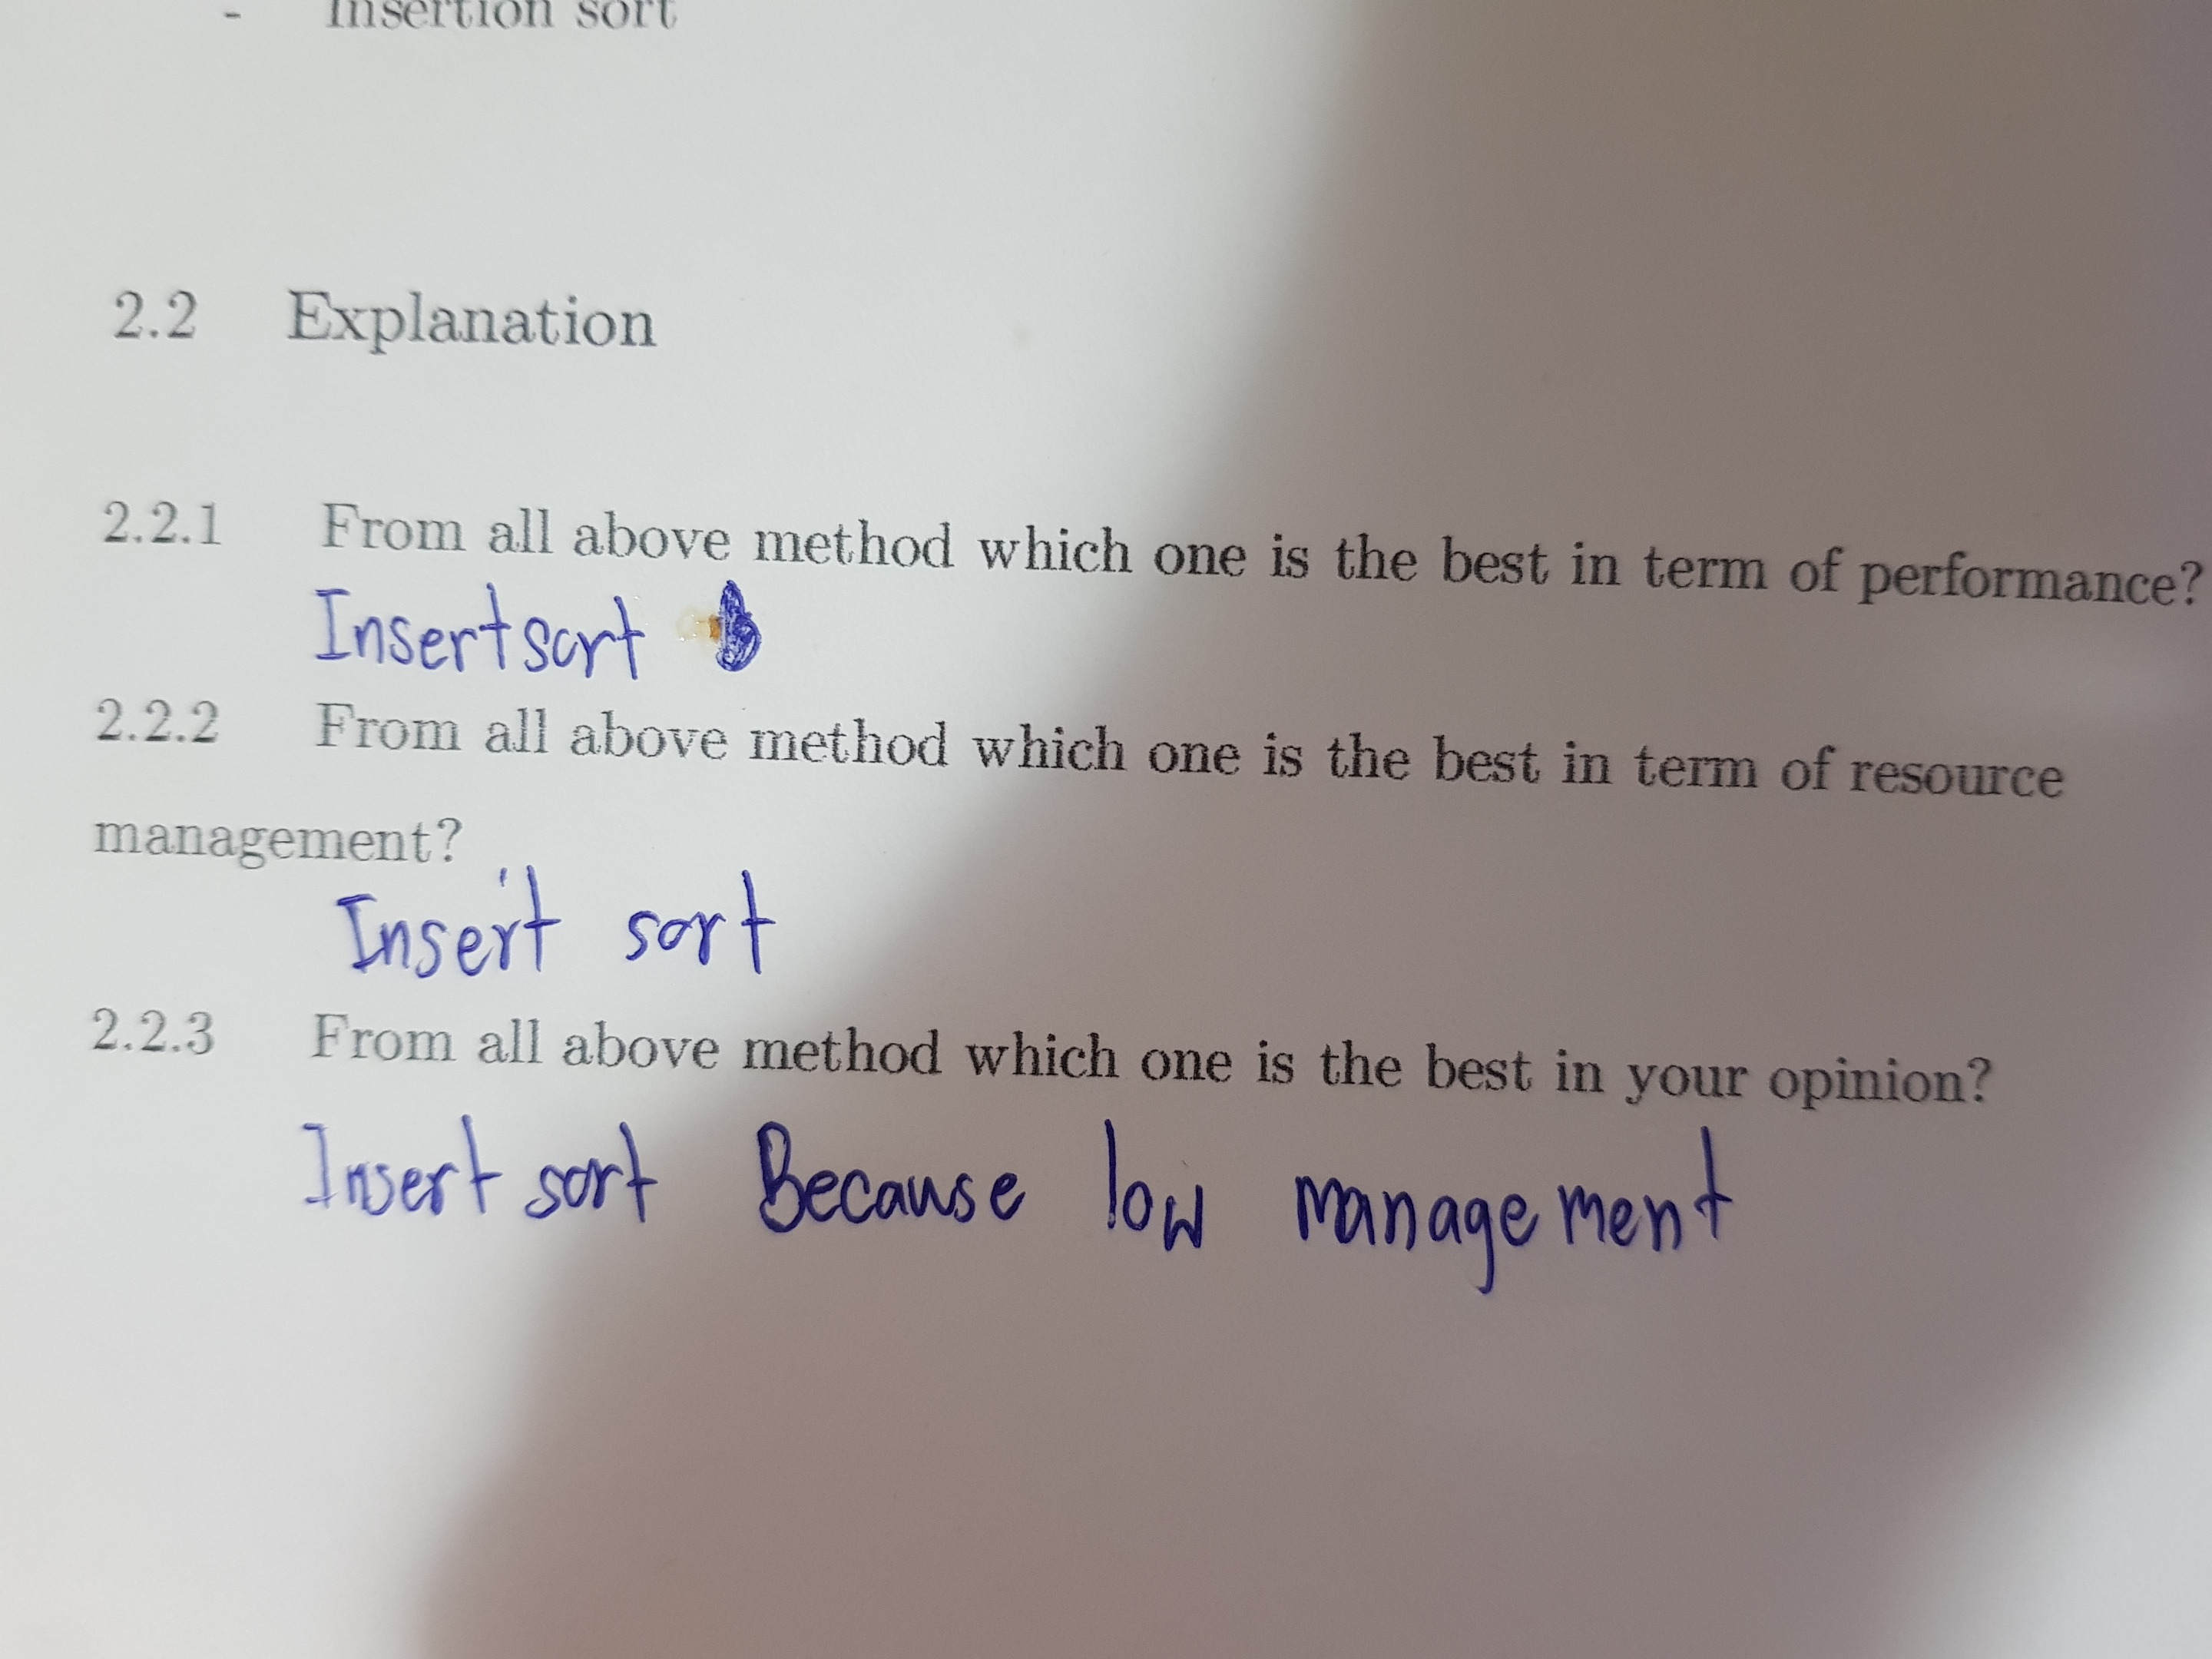 - Insertion sort
2.2 Explanation
2.2.1 From all above method which one is the best in term of performance?
Insert sort
2.2.2 From all above method which one is the best in term of resource
management?
Insert sort
2.2.3 From all above method which one is the best in your opinion?
Insert sort Because low management